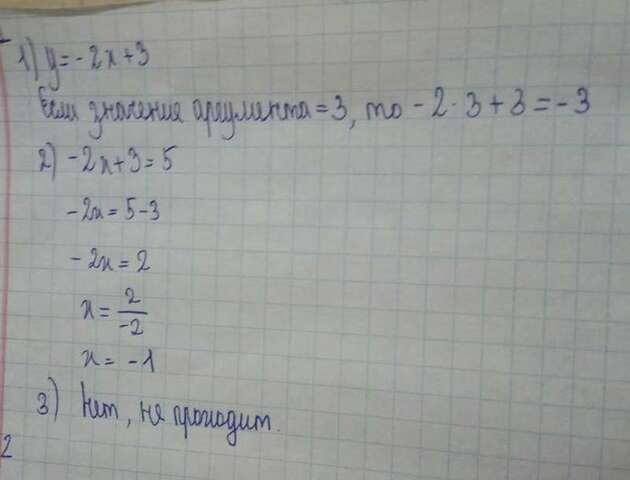 1) y = -2x+3
Если значение аргумента = 3, то -2·3+3=-3
2) -2x+3=5
-2x=5-3
-2x=2
x= 2/-2
x= -1
3) Нет, не проходит.
2